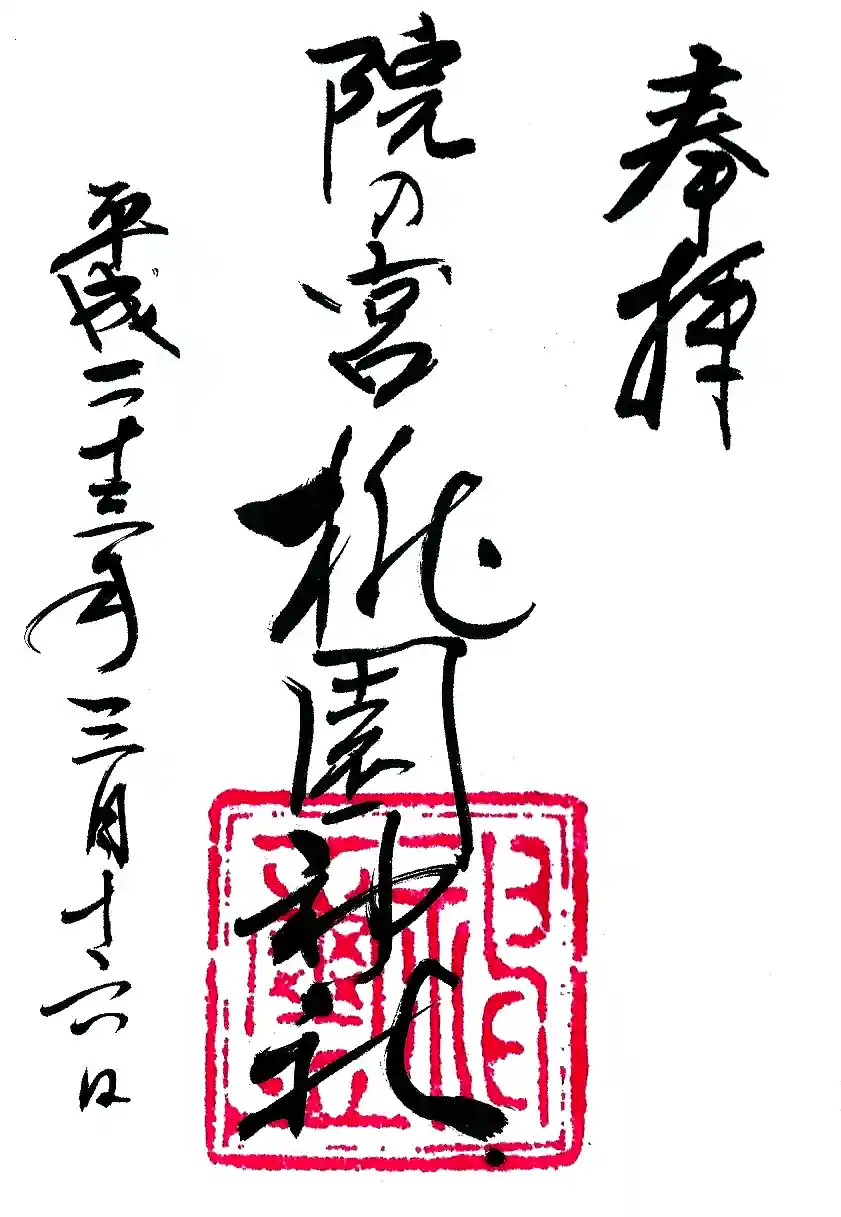 奉拝
院の宮 桃園神社
平成二十三年三月十六日
神璽